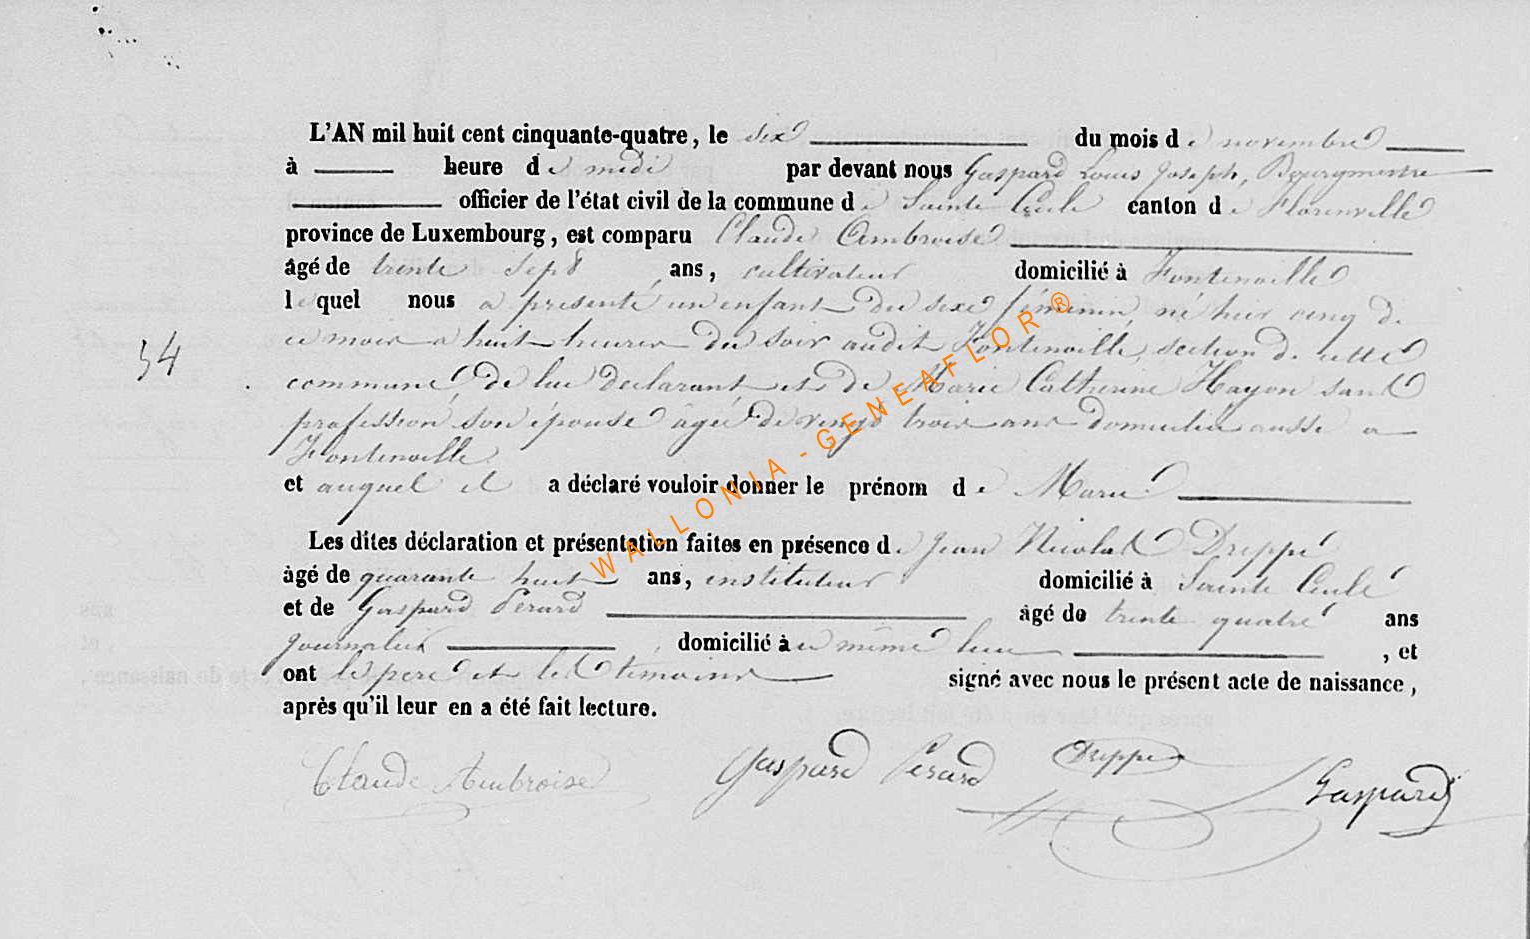 L'AN mil huit cent cinquante-quatre, le six du mois de novembre
à heure de midi par devant nous Gaspard Louis Joseph, Bourgmestre
officier de l'état civil de la commune de Sainte Cecile canton de Florenville
province de Luxembourg, est comparu Claude Ambroise
âgé de trente sept ans, cultivateur domicilié à Fontenoille
lequel nous a présenté un enfant du sexe féminin, né hier cinq de
ce mois a huit heures du soir audit Fontenoille, section de cette
34
commune, de lui declarant et de Marie Catherine Hayon sans
profession, son épouse âgée de vingt trois ans domiciliée aussi a
Fontenoille
et auquel il a déclaré vouloir donner le prénom de Marie
Les dites déclaration et présentation faites en présence de Jean Nicolas Dreppe
âgé de quarante huit ans, instituteur domicilié à Sainte Cecile
et de Gaspard Perard âgé de trente quatre ans
journalier domicilié à ce même lieu, et
ont le père et les témoins signé avec nous le présent acte de naissance,
après qu'il leur en a été fait lecture.
Claude Ambroise Gaspard Perard Dreppe Gaspard
WALLONIA-GENEAFLOR ®